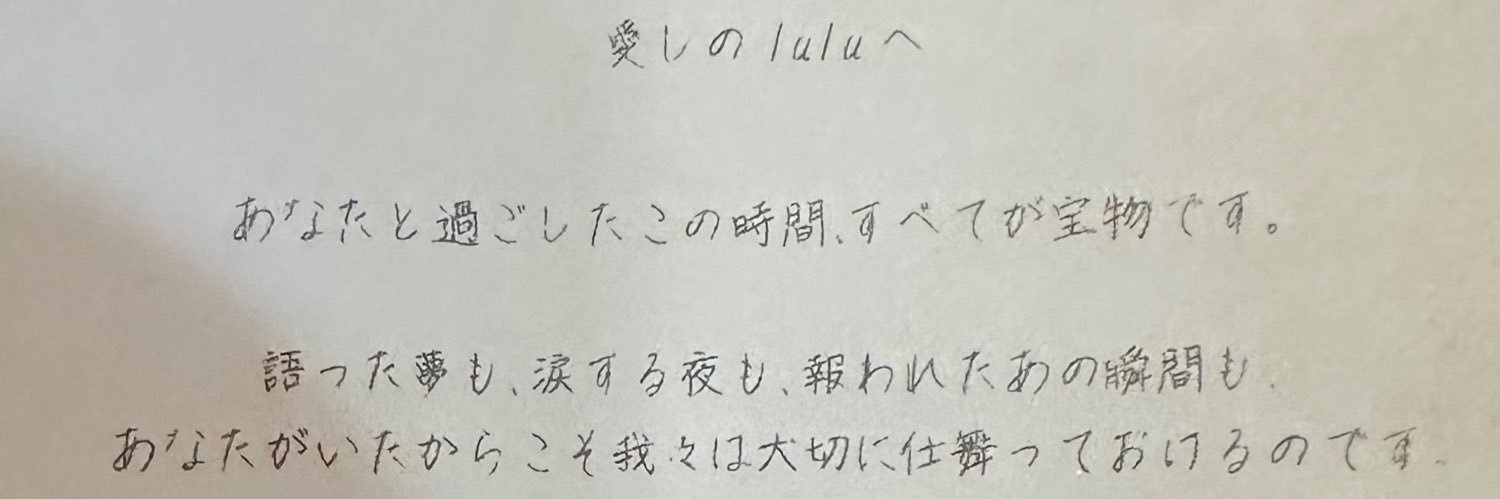 愛しのluluへ
あなたと過ごしたこの時間、すべてが宝物です。
語った夢も、涙する夜も、報われたあの瞬間も、
あなたがいたからこそ我々は大切に仕舞っておけるのです、